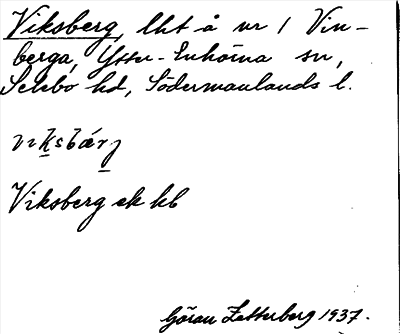 Viksberg, lht å nr 1 Vin-
berga, Ytter-Enhörna sn,
Selebo hd, Södermanlands l.
Viksberg ek kb
Göran Zetterberg 1937.